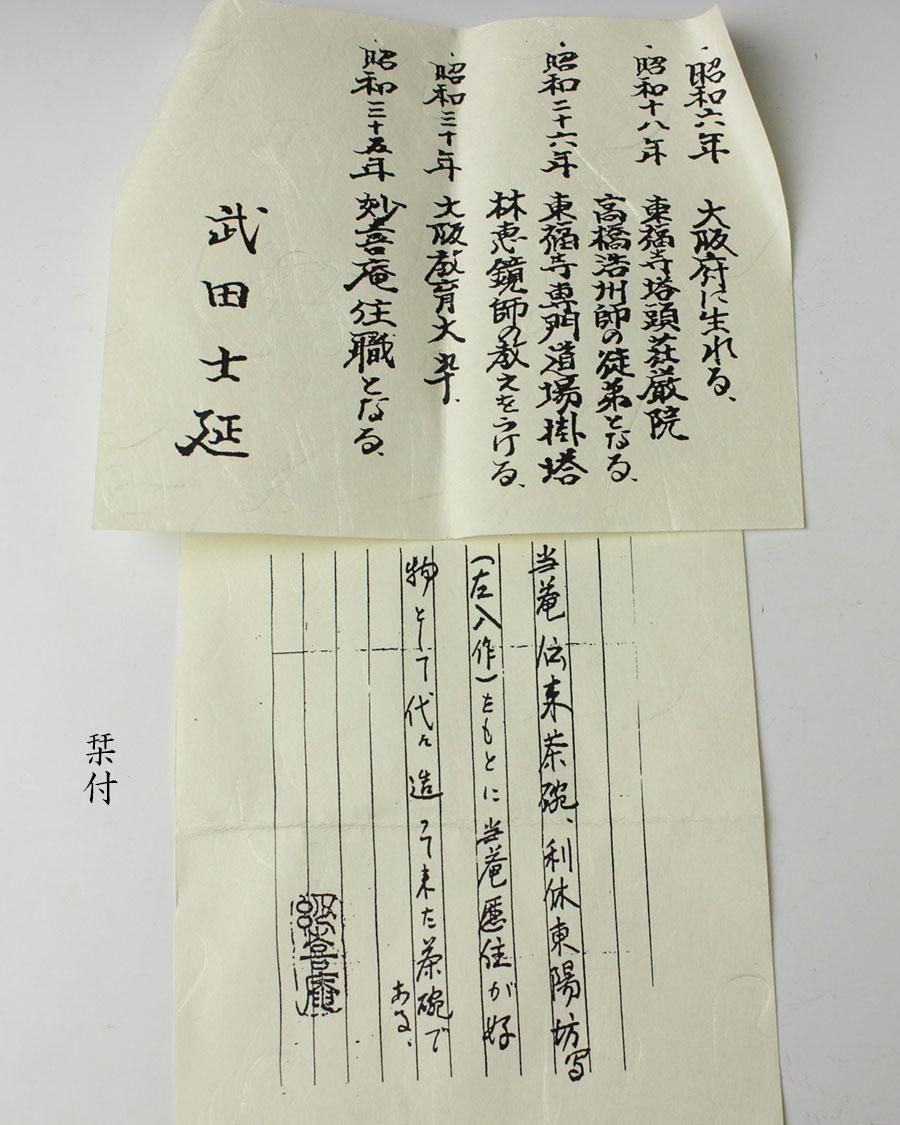 ・昭和六年 大阪府に生れる、
・昭和十八年 東福寺塔頭荘厳院
高橋浩州師の徒弟となる、
・昭和二十六年 東福寺専門道場掛塔
林恵鏡師の教えをうける、
・昭和三十年 大阪教育大卆、
・昭和三十五年 妙喜庵住職となる、
武田士延
当菴伝来茶碗、利休東陽坊写
(左入作)をもとに当菴歴住が好
物として代々造って来た茶碗で
ある、
妙喜庵
栞付